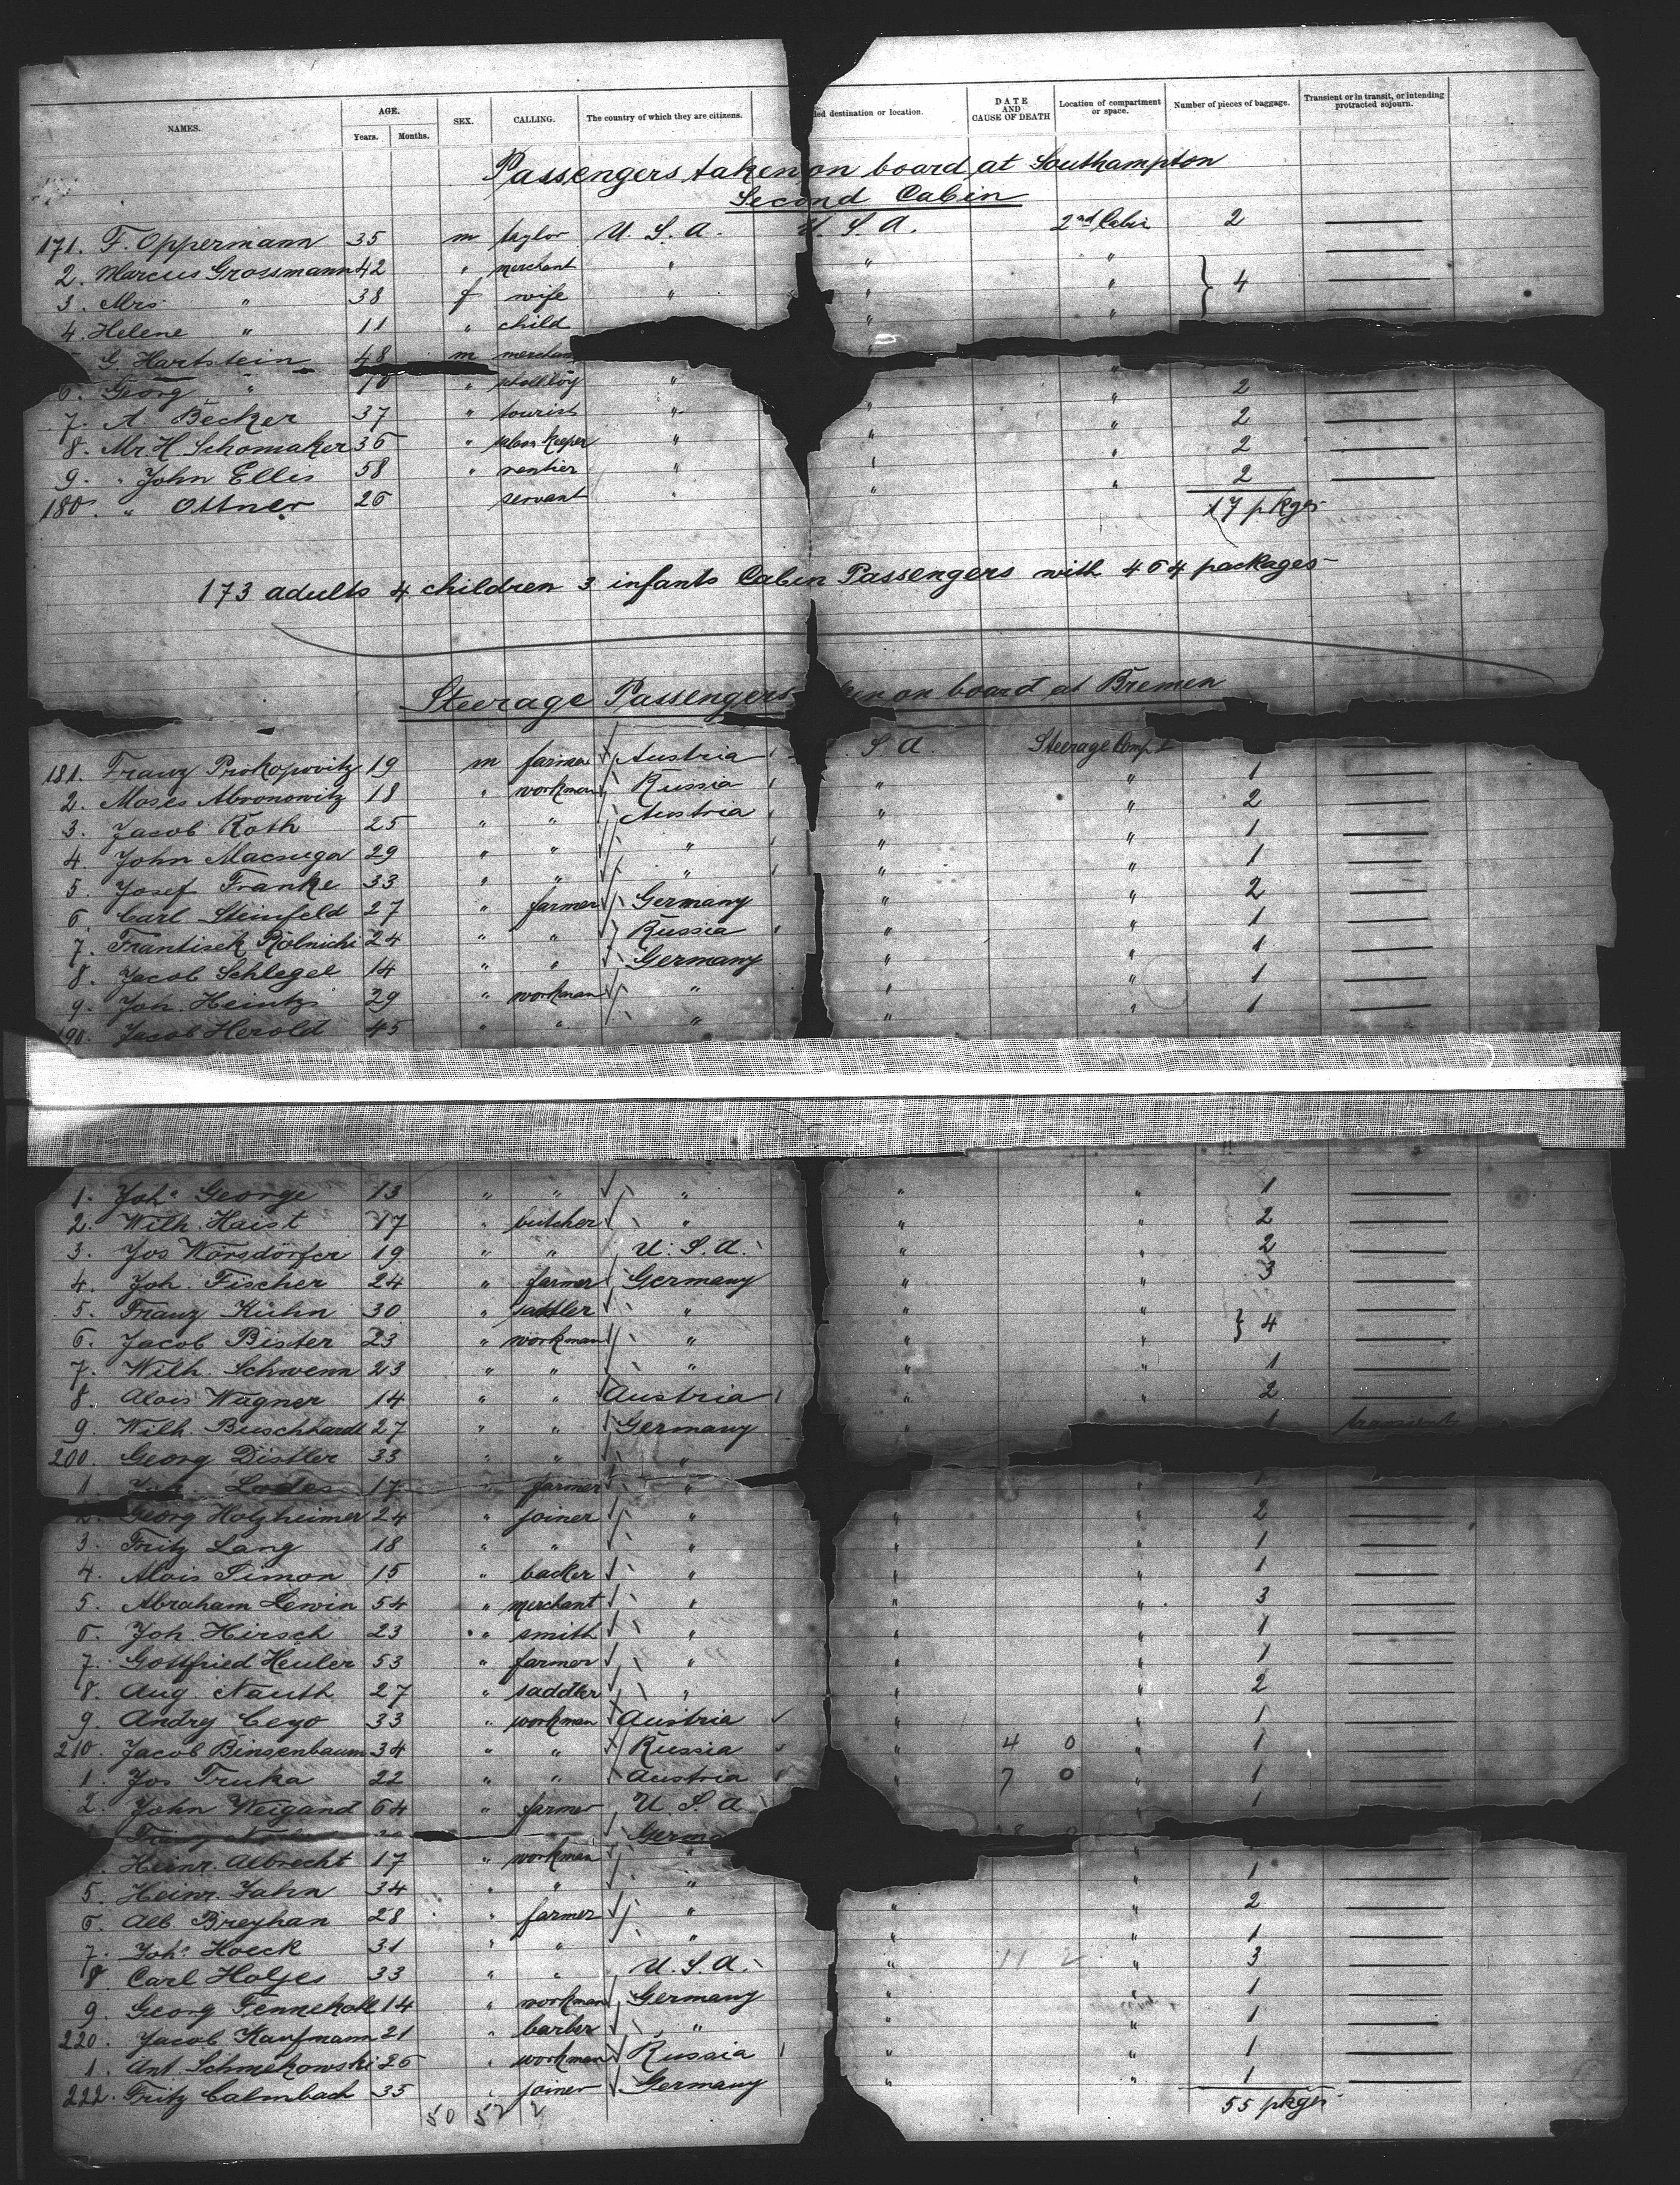 NAMES. AGE. Years. Months. SEX. CALLING. The country of which they are citizens. destination or location. DATE AND CAUSE OF DEATH Location of compartment or space. Number of pieces of baggage. Transient or in transit, or intending protracted sojourn.
Passengers taken on board at Southampton
Second Cabin
171. F. Oppermann 35 m taylor U. S. A. U. S. A. 2nd Cabin 2 —
2. Marcus Grossmann 42 " merchant " " " —
3. Mrs. " 38 f wife " " " } 4 —
4. Helene " 11 " child " " —
G. Hartstein 48 m "
6. Georg " 10 " " "
7. A. Becker 37 " tourist " " " 2 —
8. Mr. H. Schomaker 36 " keeper " " " 2 —
9. " John Ellis 58 " rentier " " " 2 —
180. " Ottner 26 servant " " " 2 —
17 pkges
173 adults 4 children 3 infants Cabin Passengers with 464 packages
Steerage Passengers on board at Bremen
181. Franz Prokopovitz 19 m farmer Austria S. A. Steerage Comp. 1
2. Moses Abronowitz 18 " workman Russia " " 1 —
3. Jacob Roth 25 " " Austria " " 2 —
4. John Macsuga 29 " " " " " 1 —
5. Josef Franke 33 " " " " " 1 —
6. Carl Steinfeld 27 " farmer Germany " " 2 —
7. Frantisek Rolnichi 24 " " Russia " " 1 —
8. Jacob Schlegel 14 " " Germany " " 1 —
9. Joh. Heintz 29 " workman " " " 1 —
190. Jacob Herold 45 " " " " " 1 —
1. Joh. George 13 " " " " " 1 —
2. Wilh. Haist 17 " butcher " " " 2 —
3. Jos. Wörsdörfer 19 " " U. S. A. " " 2 —
4. Joh. Fischer 24 " farmer Germany " " 3 —
5. Franz Kühn 30 " sattler " " " —
6. Jacob Bister 23 " workman " " " } 4 —
7. Wilh. Schwenn 23 " " " " " 1 —
8. Alois Wagner 14 " " Austria " " 2 —
9. Wilh. Buschhardt 27 " " Germany " 1
200. Georg Distler 33 " " "
1. Lodes 17 " farmer " "
2. Georg Holzheimer 24 " joiner " " " 2 —
3. Fritz Lang 18 " " " " " 1 —
4. Alois Simon 15 " backer " " " 1 —
5. Abraham Lewin 54 " merchant " " " 3 —
6. Joh. Hirsch 23 " smith " " " 1 —
7. Gottfried Heuler 53 " farmer " " " 1 —
8. Aug. Nauth 27 " saddler " " " 2 —
9. Andry Ceyo 33 " workman Austria " " 1 —
210. Jacob Binsenbaum 34 " " Russia " 4 0 " 1 —
1. Jos. Truka 22 " " Austria " 7 0 " 1 —
2. John Weigand 64 " farmer U. S. A. " 1
Franz
Heinr. Albrecht 17 " workman "
5. Heinr. Jahn 34 " " " " 1 —
6. Alb. Breyhan 28 " farmer " " " 2 —
7. Joh. Hoeck 31 " " " " " 1 —
8. Carl Holjes 33 " " U. S. A. " 11 2 " 3 —
9. Georg Fennekohl 14 " workman Germany " " 1 —
220. Jacob Kaufmann 21 " barber " " " 1 —
1. Ant. Schmekowski 26 " workman Russia " " 1 —
222. Fritz Calmbach 35 " joiner Germany " " 1 —
50 52 2
55 pkges